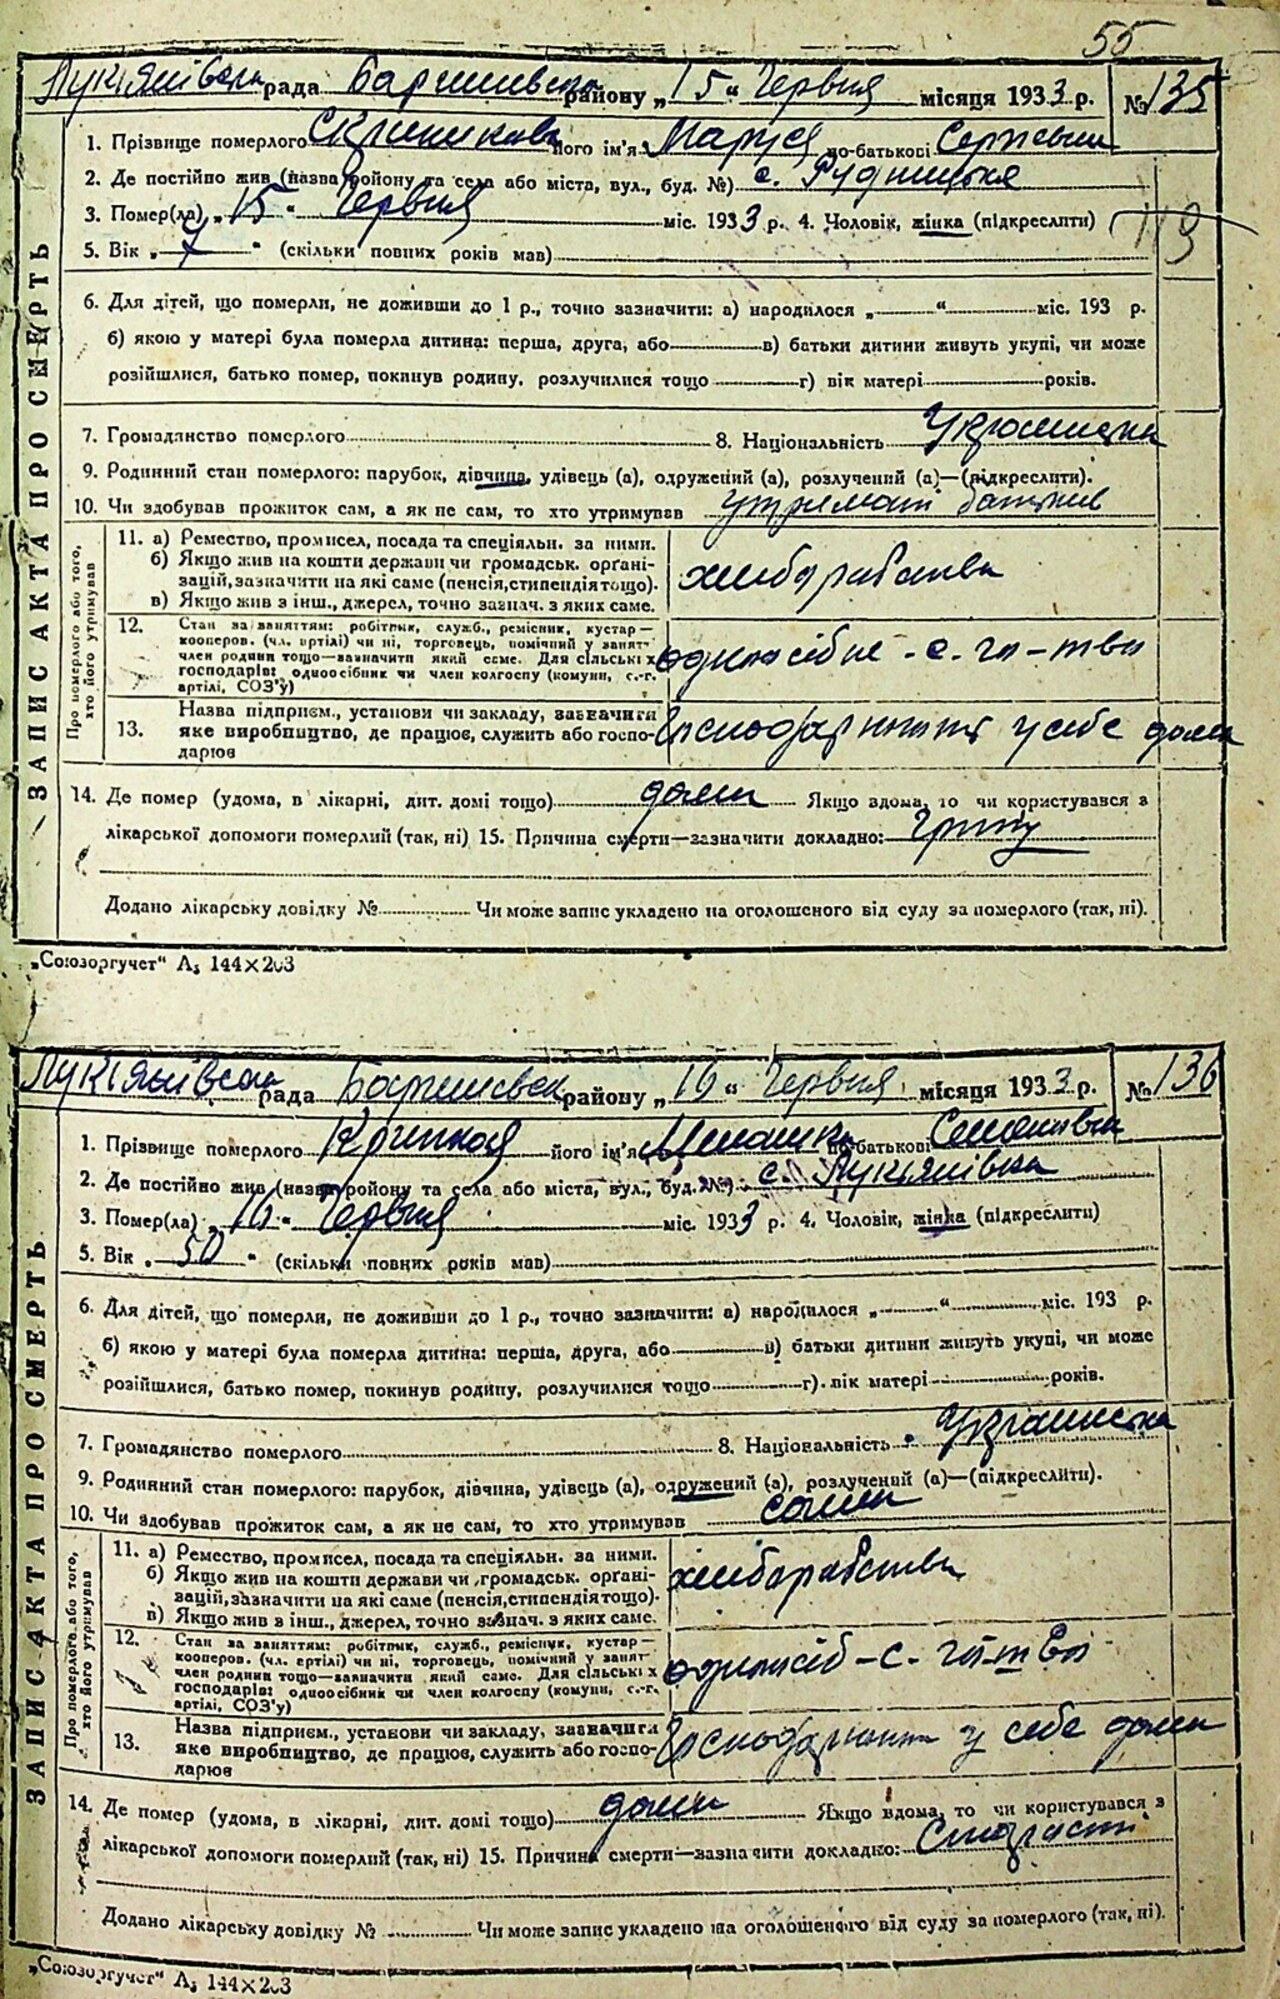 55
Лукіянівська рада Баришівська району „15“ Червня місяця 1933 р. № 135
1. Прізвище померлого його ім'я Маруся по-батькові
2. Де постійно жив (назва району та села або міста, вул., буд. №) с. Рудницьке
3. Помер(ла) „15“ Червня міс. 1933 р. 4. Чоловік, жінка (підкреслити)
5. Вік „7“ (скільки повних років мав)
6. Для дітей, що померли, не доживши до 1 р., точно зазначити: а) народилося „ “ міс. 193 р.
б) якою у матері була померла дитина: перша, друга, або в) батьки дитини живуть укупі, чи може
розійшлися, батько помер, покинув родину, розлучилися тощо г) вік матері років.
7. Громадянство померлого 8. Національність Українка
9. Родинний стан померлого: парубок, дівчина, удівець (а), одружений (а), розлучений (а)—(підкреслити).
10. Чи здобував прожиток сам, а як не сам, то хто утримував
ЗАПИС АКТА ПРО СМЕРТЬ
Про померлого або того, хто його утримував
11. а) Ремество, промисел, посада та спеціяльн. за ними.
б) Якщо жив на кошти держави чи громадськ. орґані-
зацій, зазначити на які саме (пенсія, стипендія тощо).
в) Якщо жив з інш., джерел, точно зазнач. з яких саме.
хлиборобства
12. Стан за заняттям: робітник, служб., ремісник, кустар—
кооперов. (чл. артілі) чи ні, торговець, помічний у занят.
член родини тощо—зазначити який саме. Для сільських
господарів: одноосібник чи член колгоспу (комуни, с.-г.
артілі, СОЗ'у)
13. Назва підприєм., установи чи закладу, зазначити
яке виробництво, де працює, служить або госпо-
дарює
у себе дома
14. Де помер (удома, в лікарні, дит. домі тощо) дома Якщо вдома, то чи користувався з
лікарської допомоги померлий (так, ні) 15. Причина смерти—зазначити докладно: Грипу
Додано лікарську довідку № Чи може запис укладено на оголошеного від суду за померлого (так, ні).
„Союзоргучет“ А5 144×203
Лукіянівська рада Баришівськ району „16“ Червня місяця 1933 р. № 136
1. Прізвище померлого його ім'я по-батькові
2. Де постійно жив (назва району та села або міста, вул., буд. №) с. Лукіянівка
3. Помер(ла) „16“ Червня міс. 1933 р. 4. Чоловік, жінка (підкреслити)
5. Вік „50“ (скільки повних років мав)
6. Для дітей, що померли, не доживши до 1 р., точно зазначити: а) народилося „ “ міс. 193 р.
б) якою у матері була померла дитина: перша, друга, або в) батьки дитини живуть укупі, чи може
розійшлися, батько помер, покинув родину, розлучилися тощо г) вік матері років.
7. Громадянство померлого 8. Національність Українка
9. Родинний стан померлого: парубок, дівчина, удівець (а), одружений (а), розлучений (а)—(підкреслити).
10. Чи здобував прожиток сам, а як не сам, то хто утримував сама
ЗАПИС АКТА ПРО СМЕРТЬ
Про померлого або того, хто його утримував
11. а) Ремество, промисел, посада та спеціяльн. за ними.
б) Якщо жив на кошти держави чи громадськ. орґані-
зацій, зазначити на які саме (пенсія, стипендія тощо).
в) Якщо жив з інш., джерел, точно зазнач. з яких саме.
хлиборобства
12. Стан за заняттям: робітник, служб., ремісник, кустар—
кооперов. (чл. артілі) чи ні, торговець, помічний у занят.
член родини тощо—зазначити який саме. Для сільських
господарів: одноосібник чи член колгоспу (комуни, с.-г.
артілі, СОЗ'у)
13. Назва підприєм., установи чи закладу, зазначити
яке виробництво, де працює, служить або госпо-
дарює
у себе дома
14. Де помер (удома, в лікарні, дит. домі тощо) дома Якщо вдома, то чи користувався з
лікарської допомоги померлий (так, ні) 15. Причина смерти—зазначити докладно:
Додано лікарську довідку № Чи може запис укладено на оголошеного від суду за померлого (так, ні).
„Союзоргучет“ А5 144×203